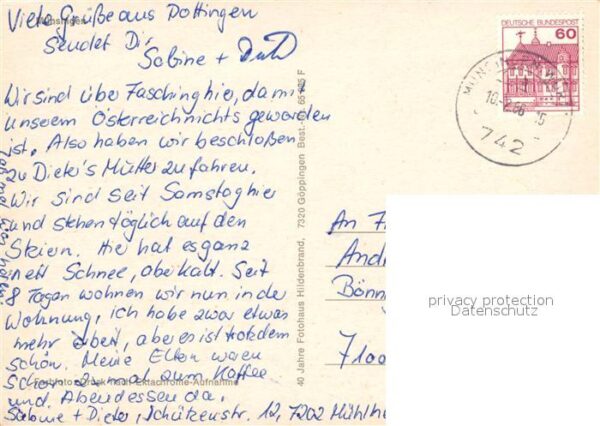 Viele Grüße aus Dottingen
sendet Dir
Sabine +
Wir sind über Fasching hier, da mit
unserem Österreich nichts geworden
ist. Also haben wir beschloßen
zu Dieter's Mutter zu fahren.
Wir sind seit Samstag hier
und stehen täglich auf den
Skiern. Hier hat es ganz
nett Schnee, aber kalt. Seit
8 Tagen wohnen wir nun in der
Wohnung, ich habe zwar etwas
mehr Arbeit, aber es ist trotzdem
schön. Meine Eltern waren
schon 2 mal zum Kaffee
und Abendessen da.
Sabine + Dieter, Schützenstr. 12, 7202 Mühlhe
Farbfoto Druck nach Ektachrome-Aufnahme
40 Jahre Fotohaus Hildenbrand, 7320 Göppingen Best.-Nr. 65
DEUTSCHE BUNDESPOST
60
742
An F
Andr
Bönn
7100
privacy protection
Datenschutz